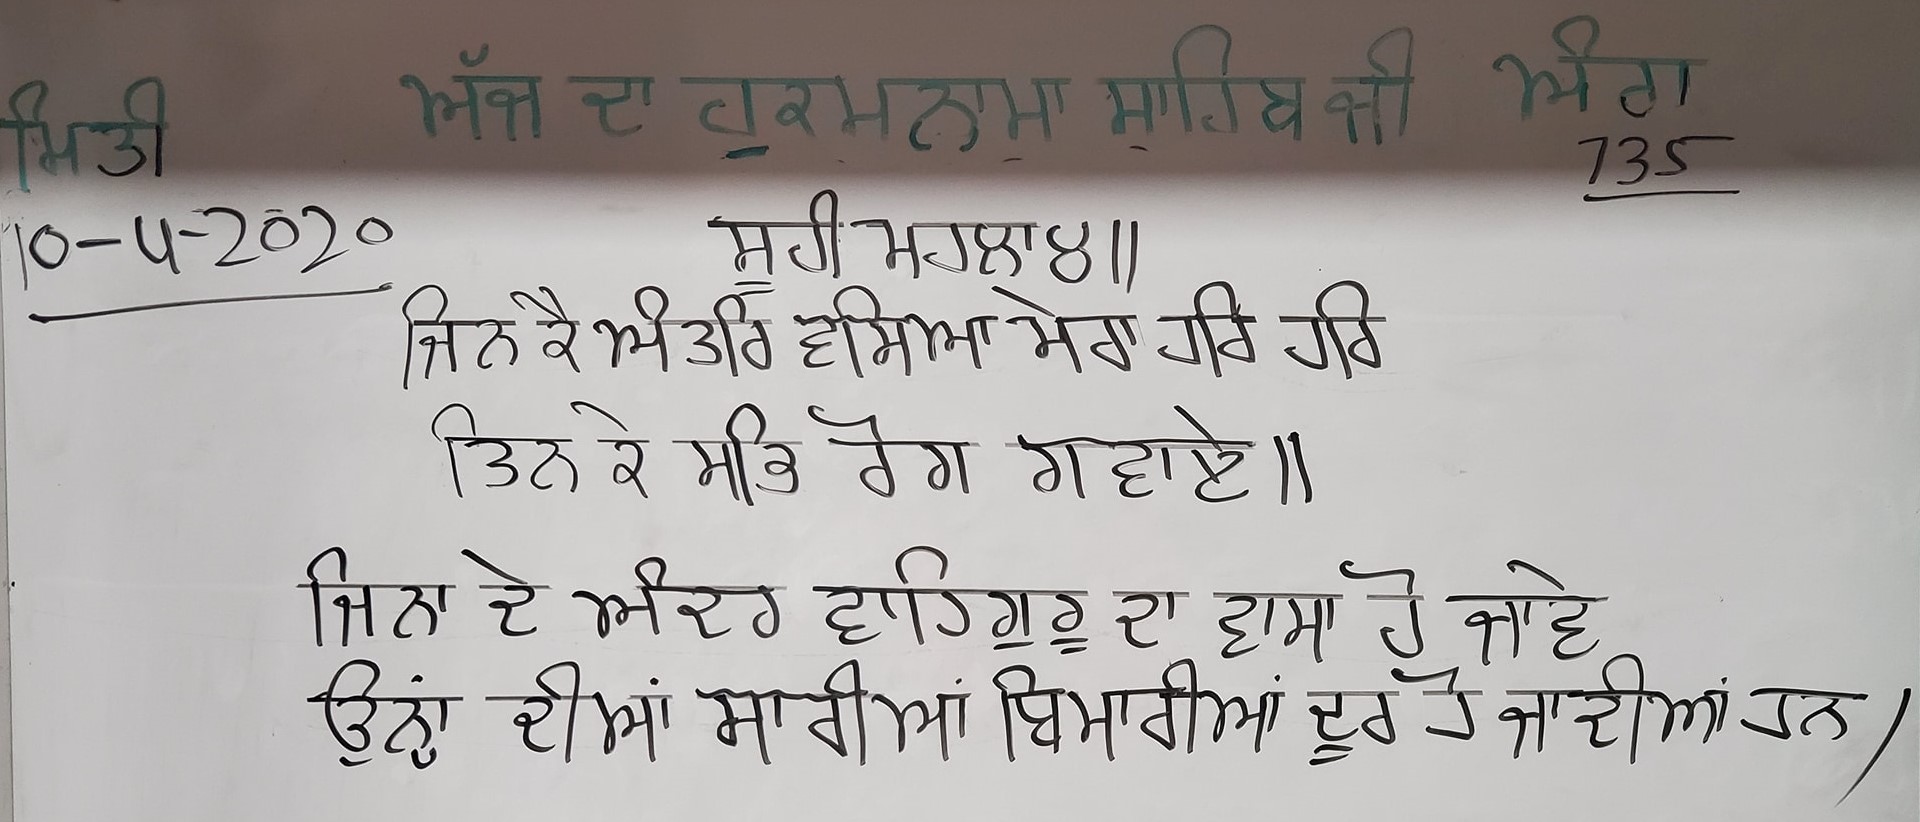 ਮਿਤੀ ਅੱਜ ਦਾ ਹੁਕਮਨਾਮਾ ਸਾਹਿਬ ਜੀ ਅੰਗ
735
10-4-2020 ਸੂਹੀ ਮਹਲਾ ੪॥
ਜਿਨ ਕੈ ਅੰਤਰਿ ਵਸਿਆ ਮੇਰਾ ਹਰਿ ਹਰਿ
ਤਿਨ ਕੇ ਸਭਿ ਰੋਗ ਗਵਾਏ॥
ਜਿਨਾ ਦੇ ਅੰਦਰ ਵਾਹਿਗੁਰੂ ਦਾ ਵਾਸਾ ਹੋ ਜਾਵੇ
ਉਨ੍ਹਾਂ ਦੀਆਂ ਸਾਰੀਆਂ ਬਿਮਾਰੀਆਂ ਦੂਰ ਹੋ ਜਾਦੀਆਂ ਹਨ/